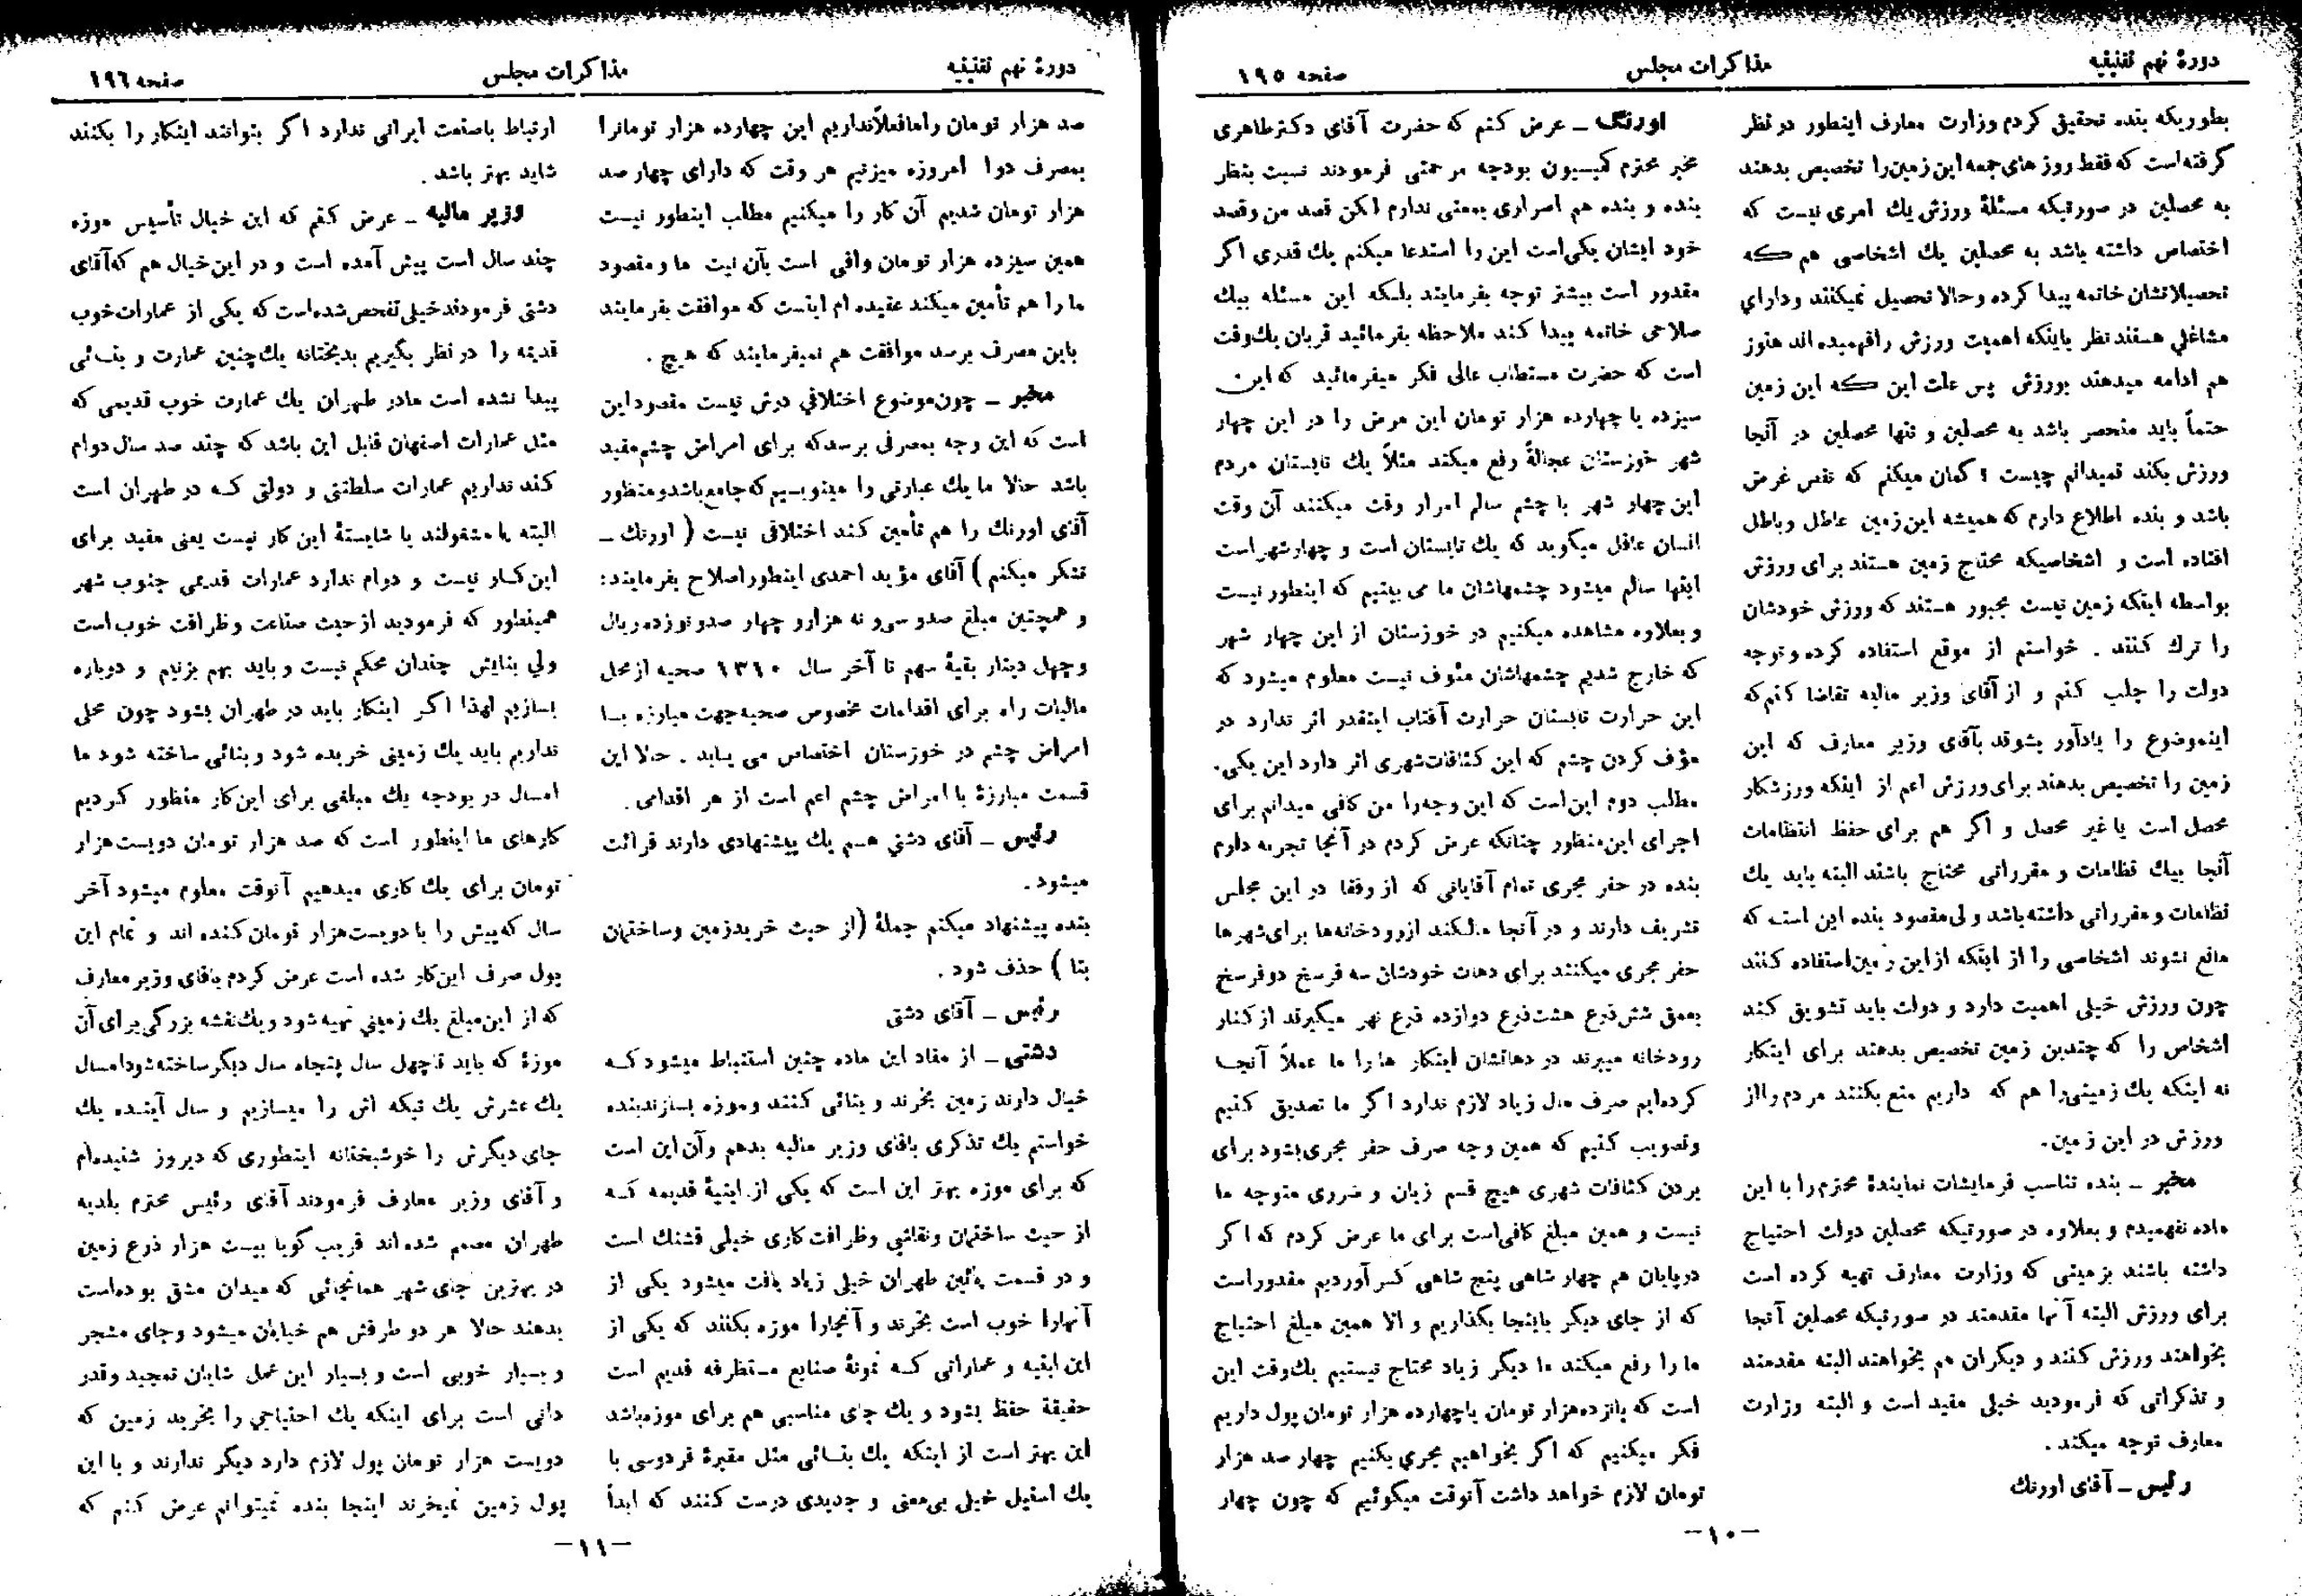 دورهٔ نهم تقنینیه
مذاکرات مجلس
صفحه ۱۹۵
بطوریکه بنده تحقیق کردم وزارت معارف اینطور در نظر
گرفته‌است که فقط روزهای جمعه این زمین‌را تخصیص بدهند
به محصلین در صورتیکه مسئلهٔ ورزش یك امری نیست که
اختصاص داشته باشد به محصلین یك اشخاصی هم که
تحصیلاتشان خاتمه پیدا کرده و حالا تحصیل نمیکنند و دارای
مشاغلی هستند نظر باینکه اهمیت ورزش را فهمیده‌اند هنوز
هم ادامه میدهند بورزش پس علت این که این زمین
حتماً باید منحصر باشد به محصلین و تنها محصلین در آنجا
ورزش بکند نمیدانم چیست ؟ گمان میکنم که نقض غرض
باشد و بنده اطلاع دارم که همیشه این زمین عاطل و باطل
افتاده است و اشخاصیکه محتاج زمین هستند برای ورزش
بواسطه اینکه زمین نیست مجبور هستند که ورزش خودشان
را ترك کنند . خواستم از موقع استفاده کرده و توجه
دولت را جلب کنم و از آقای وزیر مالیه تقاضا کنم که
اینموضوع را یادآور بشوند بآقای وزیر معارف که این
زمین را تخصیص بدهند برای ورزش اعم از اینکه ورزشکار
محصل است یا غیر محصل و اگر هم برای حفظ انتظامات
آنجا بیك نظامات و مقرراتی محتاج باشند البته باید یك
نظامات و مقرراتی داشته باشد ولی مقصود بنده این است که
مانع نشوند اشخاصی را از اینکه از این زمین استفاده کنند
چون ورزش خیلی اهمیت دارد و دولت باید تشویق کند
اشخاص را که چندین زمین تخصیص بدهند برای اینکار
نه اینکه یك زمینی‌را هم که داریم منع بکنند مردم را از
ورزش در این زمین.
مخبر ـ بنده تناسب فرمایشات نمایندهٔ محترم را با این
ماده نفهمیدم و بعلاوه در صورتیکه محصلین دولت احتیاج
داشته باشند بزمینی که وزارت معارف تهیه کرده است
برای ورزش البته آنها مقدمند در صورتیکه محصلین آنجا
بخواهند ورزش کنند و دیگران هم بخواهند البته مقدمند
و تذکراتی که فرمودید خیلی مفید است و البته وزارت
معارف توجه میکند .
رئیس ـ آقای اورنك
اورنگ ـ عرض کنم که حضرت آقای دکتر طاهری
مخبر محترم کمیسیون بودجه مرحمتی فرمودند نسبت بنظر
بنده و بنده هم اصراری بمعنی ندارم لکن قصد من و قصد
خود ایشان یکی‌است این را استدعا میکنم یك قدری اگر
مقدور است بیشتر توجه بفرمایند بلکه این مسئله بیك
صلاحی خاتمه پیدا کند ملاحظه بفرمائید قربان یك‌وقت
است که حضرت مستطاب عالی فکر میفرمائید که این
سیزده یا چهارده هزار تومان این مرض را در این چهار
شهر خوزستان عجالةً رفع میکند مثلاً یك تابستان مردم
این چهار شهر با چشم سالم امرار وقت میکنند آن وقت
انسان عاقل میگوید که یك تابستان است و چهار شهر است
اینها سالم میشود چشمهاشان ما می بینیم که اینطور نیست
و بعلاوه مشاهده میکنیم در خوزستان از این چهار شهر
که خارج شدیم چشمهاشان مئوف نیست معلوم میشود که
این حرارت تابستان حرارت آفتاب اینقدر اثر ندارد در
مؤف کردن چشم که این کثافات‌شهری اثر دارد این یکی.
مطلب دوم این‌است که این وجه‌را من کافی میدانم برای
اجرای این‌منظور چنانکه عرض کردم در آنجا تجربه دارم
بنده در حفر مجری تمام آقایانی که از رفقا در این مجلس
تشریف دارند و در آنجا مالکند از رودخانه‌ها برای شهرها
حفر مجری میکنند برای دهات خودشان سه فرسخ دو فرسخ
بعمق شش‌ذرع هشت‌ذرع دوازده ذرع نهر میگیرند از کنار
رودخانه میبرند در دهاتشان اینکار ها را ما عملاً آنجا
کرده‌ایم صرف مال زیاد لازم ندارد اگر ما تصدیق کنیم
و تصویب کنیم که همین وجه صرف حفر مجری بشود برای
بردن کثافات شهری هیچ قسم زیان و ضرری متوجه ما
نیست و همین مبلغ کافی‌است برای ما عرض کردم که اگر
در پایان هم چهار شاهی پنج شاهی کسر آوردیم مقدور است
که از جای دیگر باینجا بگذاریم و الا همین مبلغ احتیاج
ما را رفع میکند ما دیگر زیاد محتاج نیستیم یك‌وقت این
است که پانزده‌هزار تومان یا چهارده هزار تومان پول داریم
فکر میکنیم که اگر بخواهیم مجری بکنیم چهار صد هزار
تومان لازم خواهد داشت آنوقت میگوئیم که چون چهار
ـ۱۰ـ
دورهٔ نهم تقنینیه
مذاکرات مجلس
صفحه ۱۹۶
صد هزار تومان را ما فعلاً نداریم این چهارده هزار تومانرا
بمصرف دوا امروزه میزنیم هر وقت که دارای چهار صد
هزار تومان شدیم آن کار را میکنیم مطلب اینطور نیست
همین سیزده هزار تومان وافی است بآن نیت ما و مقصود
ما را هم تأمین میکند عقیده ام اینست که موافقت بفرمایند
باین مصرف برسد موافقت هم نمیفرمایند که هیچ .
مخبر ـ چون موضوع اختلافی درش نیست مقصود این
است که این وجه بمصرفی برسد که برای امراض چشم مفید
باشد حالا ما یك عبارتی را مینویسیم که جامع باشد و منظور
آقای اورنك را هم تأمین کند اختلافی نیست ( اورنك ـ
تشکر میکنم ) آقای مؤید احمدی اینطور اصلاح بفرمایند:
و همچنین مبلغ صد و سی و نه هزار و چهار صد و نوزده ریال
و چهل دینار بقیهٔ سهم تا آخر سال ۱۳۱۰ صحیه از محل
مالیات راه برای اقدامات مخصوص صحیه جهت مبارزه با
امراض چشم در خوزستان اختصاص می یابد . حالا این
قسمت مبارزهٔ با امراض چشم اعم است از هر اقدامی .
رئیس ـ آقای دشتی هم یك پیشنهادی دارند قرائت
میشود.
بنده پیشنهاد میکنم جملهٔ (از حیث خرید زمین و ساختمان
بنا ) حذف شود .
رئیس ـ آقای دشتی
دشتی ـ از مفاد این ماده چنین استنباط میشود که
خیال دارند زمین بخرند و بنائی کنند و موزه بسازند بنده
خواستم یك تذکری بآقای وزیر مالیه بدهم و آن این است
که برای موزه بهتر این است که یکی از ابنیهٔ قدیمه که
از حیث ساختمان و نقاشی و ظرافت کاری خیلی قشنك است
و در قسمت پائین طهران خیلی زیاد یافت میشود یکی از
آنهارا خوب است بخرند و آنجارا موزه بکنند که یکی از
این ابنیه و عماراتی که نمونهٔ صنایع مستظرفه قدیم است
حقیقة حفظ بشود و یك جای مناسبی هم برای موزه باشد
این بهتر است از اینکه یك بنائی مثل مقبرهٔ فردوسی با
یك استیل خیلی بی‌معنی و جدیدی درست کنند که ابداً
ارتباط با صنعت ایرانی ندارد اگر بتوانند اینکار را بکنند
شاید بهتر باشد .
وزیر مالیه ـ عرض کنم که این خیال تأسیس موزه
چند سال است پیش آمده است و در این خیال هم که آقای
دشتی فرمودند خیلی تفحص شده است که یکی از عمارات خوب
قدیمه را در نظر بگیریم بدبختانه یك چنین عمارت و بنائی
پیدا نشده است ما در طهران یك عمارت خوب قدیمی که
مثل عمارات اصفهان قابل این باشد که چند صد سال دوام
کند نداریم عمارات سلطنتی و دولتی که در طهران است
البته یا مشغولند یا شایستهٔ این کار نیست یعنی مفید برای
این کار نیست و دوام ندارد عمارات قدیمی جنوب شهر
همینطور که فرمودید از حیث صناعت و ظرافت خوب است
ولی بنایش چندان محکم نیست و باید بهم بزنیم و دوباره
بسازیم لهذا اگر اینکار باید در طهران بشود چون محلی
نداریم باید یك زمینی خریده شود و بنائی ساخته شود ما
امسال در بودجه یك مبلغی برای این‌کار منظور کردیم
کارهای ما اینطور است که صد هزار تومان دویست هزار
تومان برای یك کاری میدهیم آنوقت معلوم میشود آخر
سال که پیش را با دویست هزار تومان کنده اند و تمام این
پول صرف این‌کار شده است عرض کردم بآقای وزیر معارف
که از این مبلغ یك زمینی تهیه شود و یك نقشه بزرگی برای آن
موزهٔ که باید تا چهل سال پنجاه سال دیگر ساخته شود امسال
یك عشرش یك تیکه اش را میسازیم و سال آینده یك
جای دیگرش را خوشبختانه اینطوری که دیروز شنیده‌ام
و آقای وزیر معارف فرمودند آقای رئیس محترم بلدیه
طهران مصمم شده اند قریب گویا بیست هزار ذرع زمین
در بهترین جای شهر همانجائی که میدان مشق بوده‌است
بدهند حالا هر دو طرفش هم خیابان میشود و جای مشجر
و بسیار خوبی است و بسیار این عمل شایان تمجید و قدر
دانی است برای اینکه یك احتیاجی را بخرید زمین که
دویست هزار تومان پول لازم دارد دیگر ندارند و با این
پول زمین نمیخرند اینجا بنده نمیتوانم عرض کنم که
ـ۱۱ـ